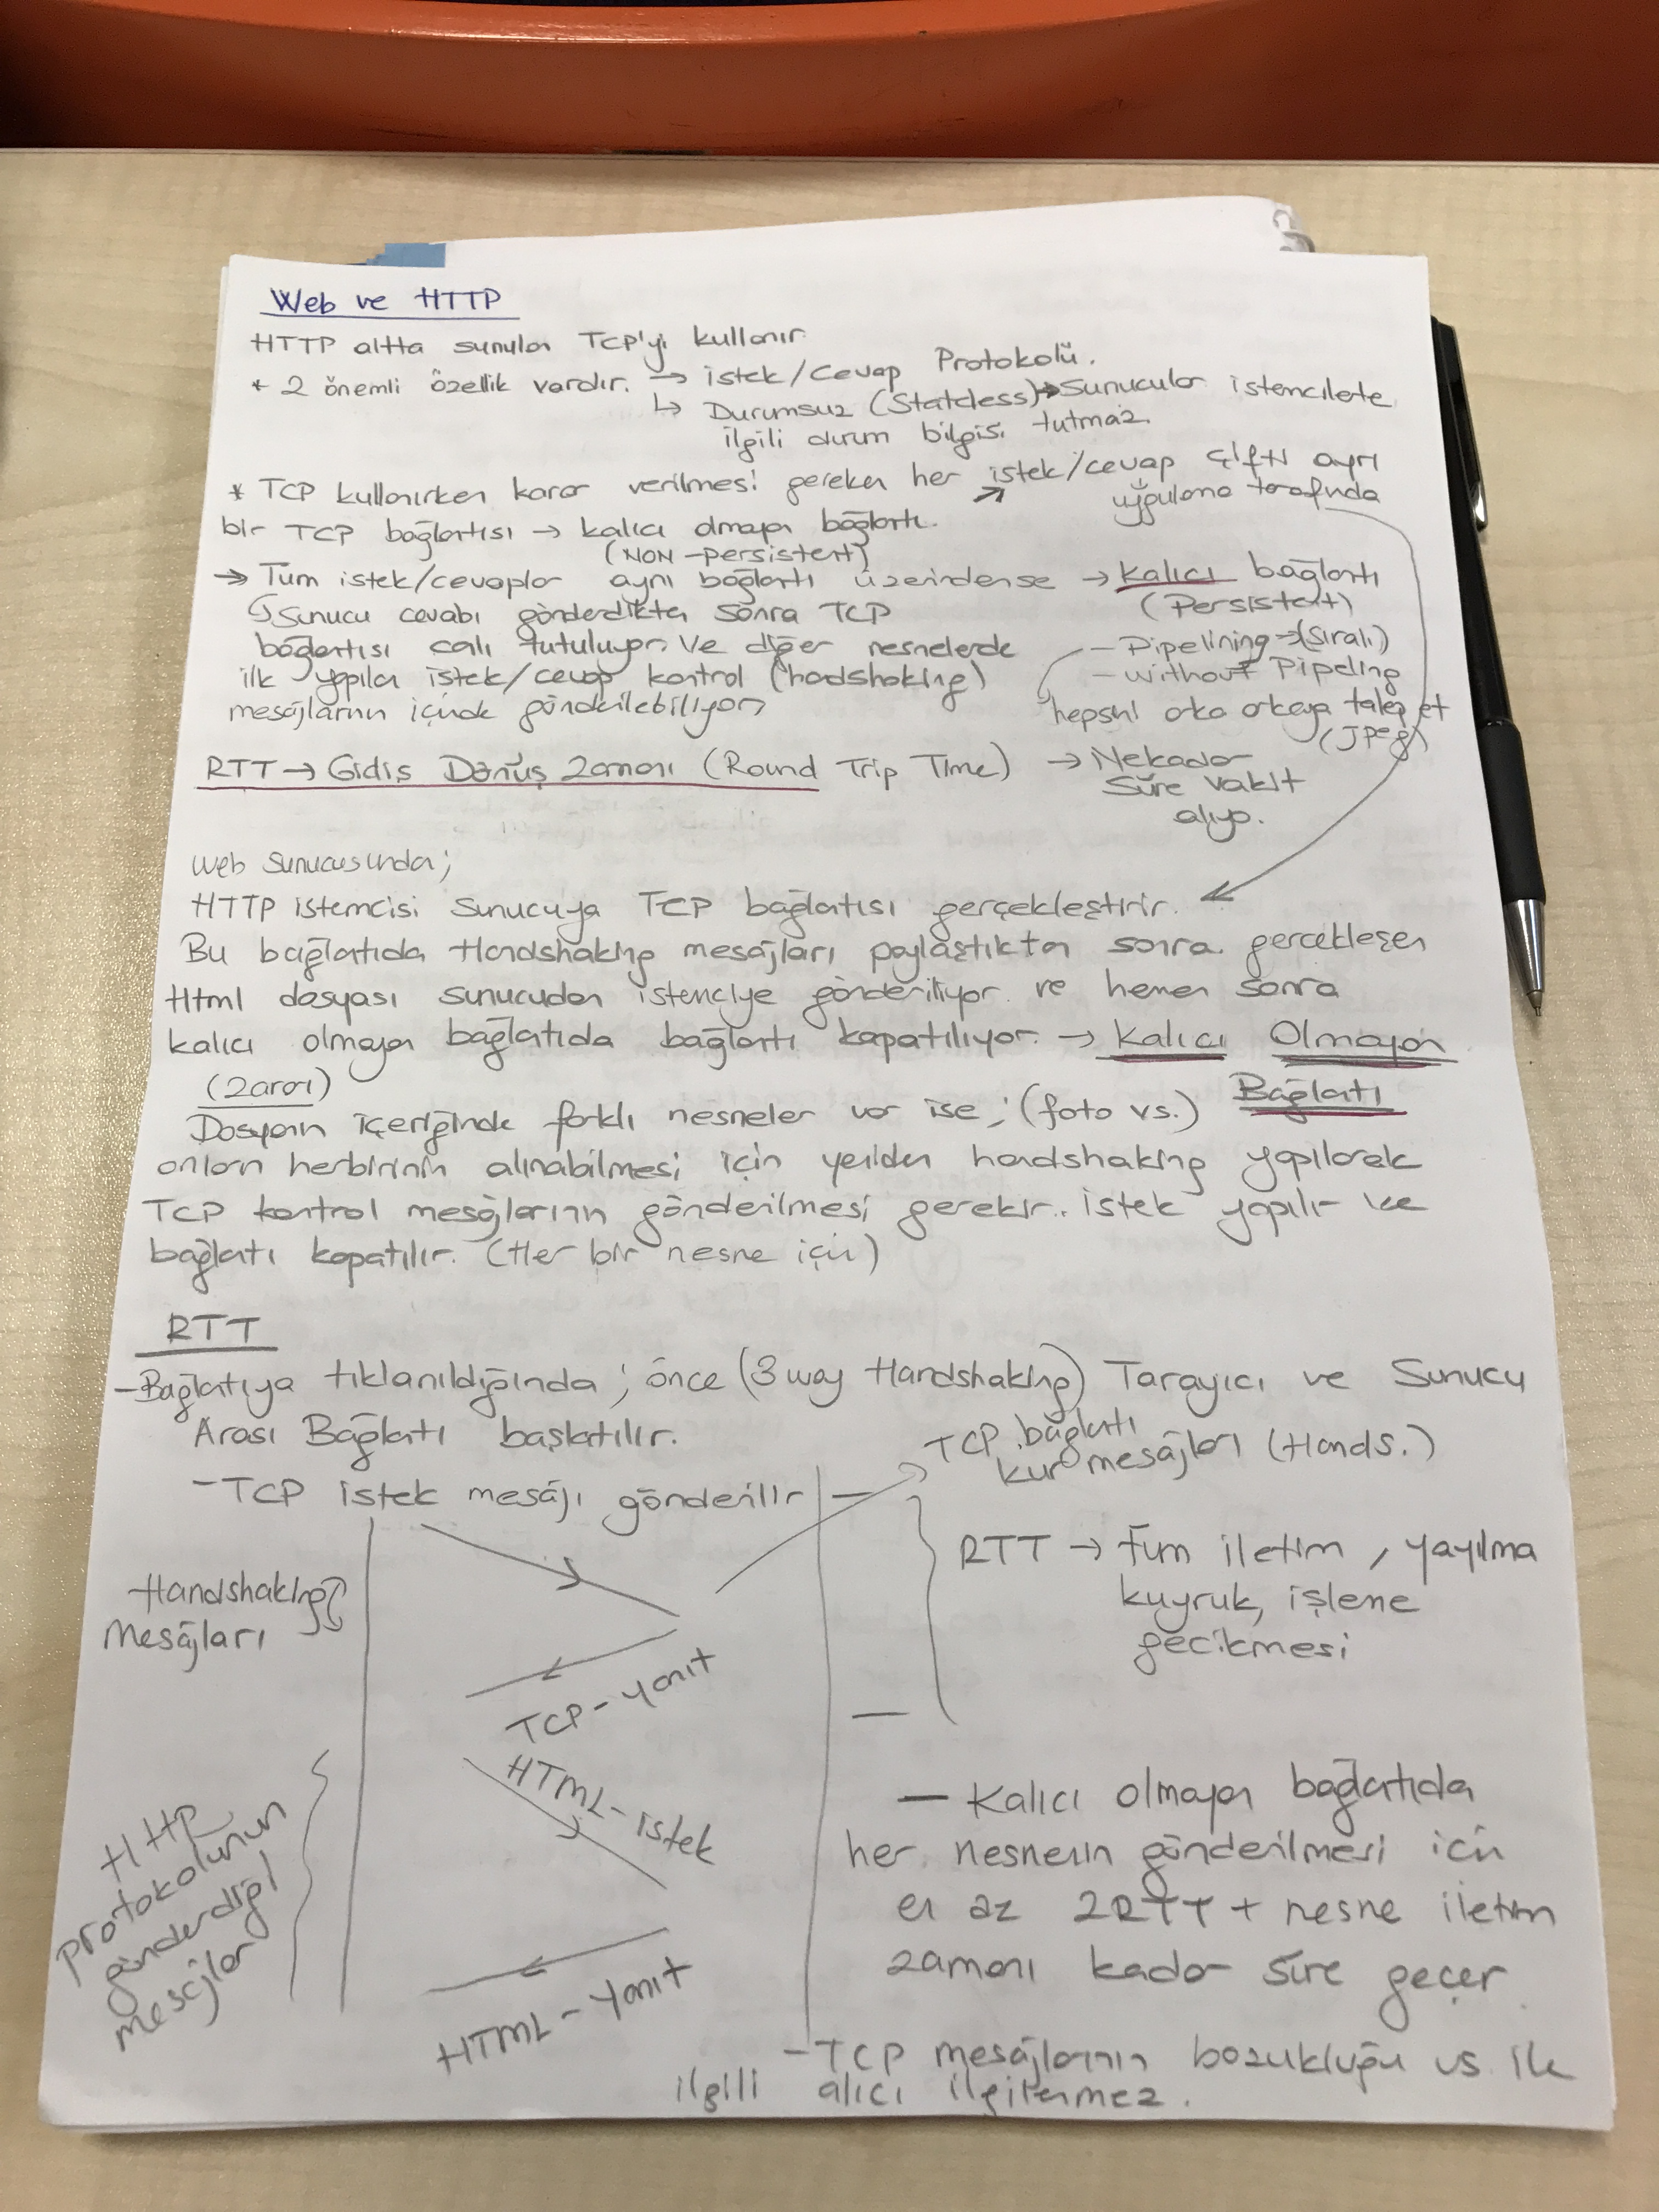 Web ve HTTP
HTTP altta sunulan TCP'yi kullanır.
* 2 önemli özellik vardır. → istek/Cevap Protokolü.
↳ Durumsuz (Stateless) → Sunucular istemcilerle
ilgili durum bilgisi tutmaz.
* TCP kullanırken karar verilmesi gereken her istek/cevap çifti ayrı
uygulama tarafında
bir TCP bağlantısı → kalıcı olmayan bağlantı.
(NON-persistent)
→ Tüm istek/cevaplar aynı bağlantı üzerindense → Kalıcı bağlantı
(Persistent)
↳ Sunucu cevabı gönderdikten sonra TCP
bağlantısı canlı tutuluyor. Ve diğer nesnelerde
- Pipelining → (sıralı)
- without Pipeling
ilk yapılan istek/cevap kontrol (handshaking)
mesajlarının içinde gönderilebiliyor
hepsini arka arkaya talep et
(Jpeg)
RTT → Gidiş Dönüş Zamanı (Round Trip Time) → Nekadar
Süre vakit
alıyo.
Web Sunucusunda;
HTTP istemcisi sunucuya TCP bağlantısı gerçekleştirir.
Bu bağlantıda Handshaking mesajları paylaştıktan sonra gerçekleşen
Html dosyası sunucudan istenciye gönderiliyor ve hemen sonra
kalıcı olmayan bağlantıda bağlantı kapatılıyor. → Kalıcı Olmayan
Bağlantı
(Zararı)
Dosyanın içeriğinde farklı nesneler var ise; (foto vs.)
onların herbirinin alınabilmesi için yeniden handshaking yapılarak
TCP kontrol mesajlarının gönderilmesi gerekir. istek yapılır ve
bağlantı kapatılır. (Her bir nesne için)
RTT
- Bağlantıya tıklanıldığında; önce (3 way Handshaking) Tarayıcı ve Sunucu
Arası Bağlantı başlatılır.
TCP bağlantı
kur mesajları (Hands.)
- TCP istek mesajı gönderilir
RTT → tüm iletim, yayılma
kuyruk, işleme
gecikmesi
Handshaking
Mesajları
TCP - Yanıt
HTML - istek
HTTP
protokolunun
gönderdiği
mesajlar
HTML - Yanıt
- Kalıcı olmayan bağlantıda
her nesnenin gönderilmesi için
en az 2RTT + nesne iletim
zamanı kadar süre geçer.
- TCP mesajlarının bozukluğu vs ile
ilgili alıcı ilgilenmez.